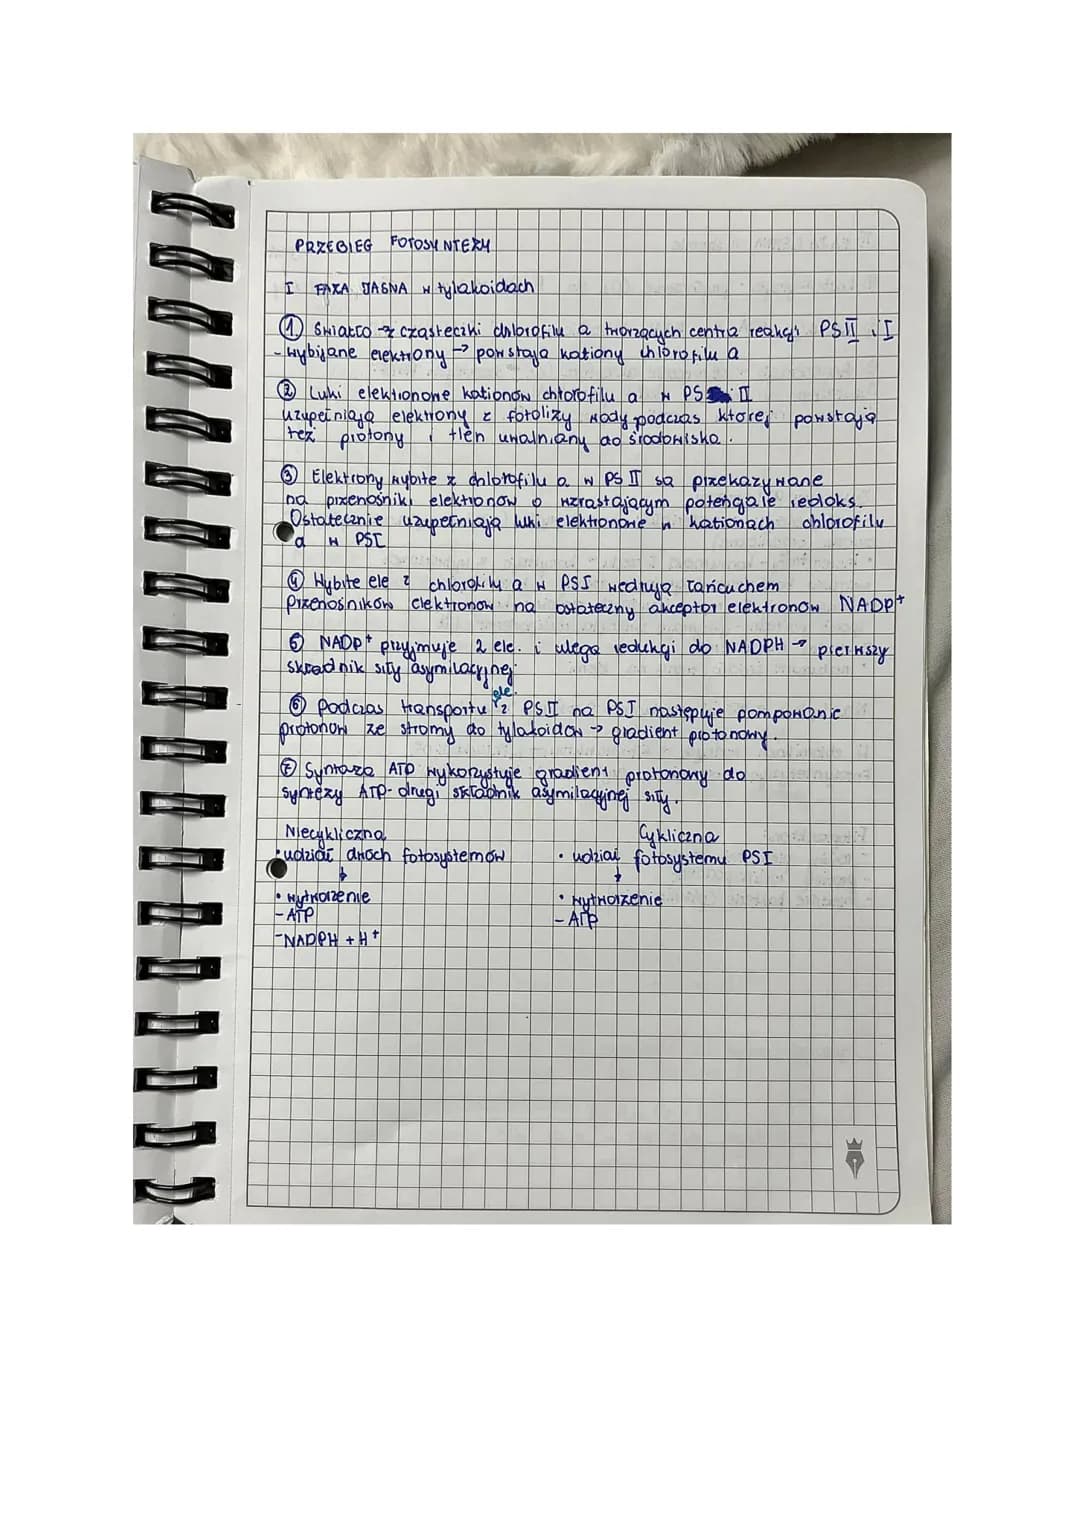 PRZEBIEG FOTOSYNTEZY
I FAZA JASNA w tylakoidach
① światło → z cząsteczki chlorofilu a tworzących centra reakcji PSII i I
- wybijane elektrony → powstają kationy chlorofilu a
② Luki elektronowe kationów chlorofilu a w PS II
uzupełniają elektrony z fotolizy wody podczas której powstają
też protony i tlen uwalniany do środowiska.
③ Elektrony wybite z chlorofilu a w PS II są przekazywane
na przenośniki elektronów o wzrastającym potencjale redoks.
Ostatecznie uzupełniają luki elektronowe w kationach chlorofilu
a w PSI
④ Wybite ele z chlorofilu a w PSI wędrują łańcuchem
przenośników elektronów na ostateczny akceptor elektronów NADP+
⑤ NADP+ przyjmuje 2 ele. i ulega redukcji do NADPH → pierwszy
składnik siły asymilacyjnej
ele.
⑥ Podczas transportu z PSII na PSI następuje pompowanie
protonów ze stromy do tylakoidów → gradient protonowy.
⑦ Syntaza ATP wykorzystuje gradient protonowy do
syntezy ATP - drugi składnik asymilacyjnej siły.
Niecykliczna Cykliczna
• udział dwoch fotosystemów • udział fotosystemu PSI
↓ ↓
• wytworzenie • wytworzenie
- ATP - ATP
- NADPH + H+